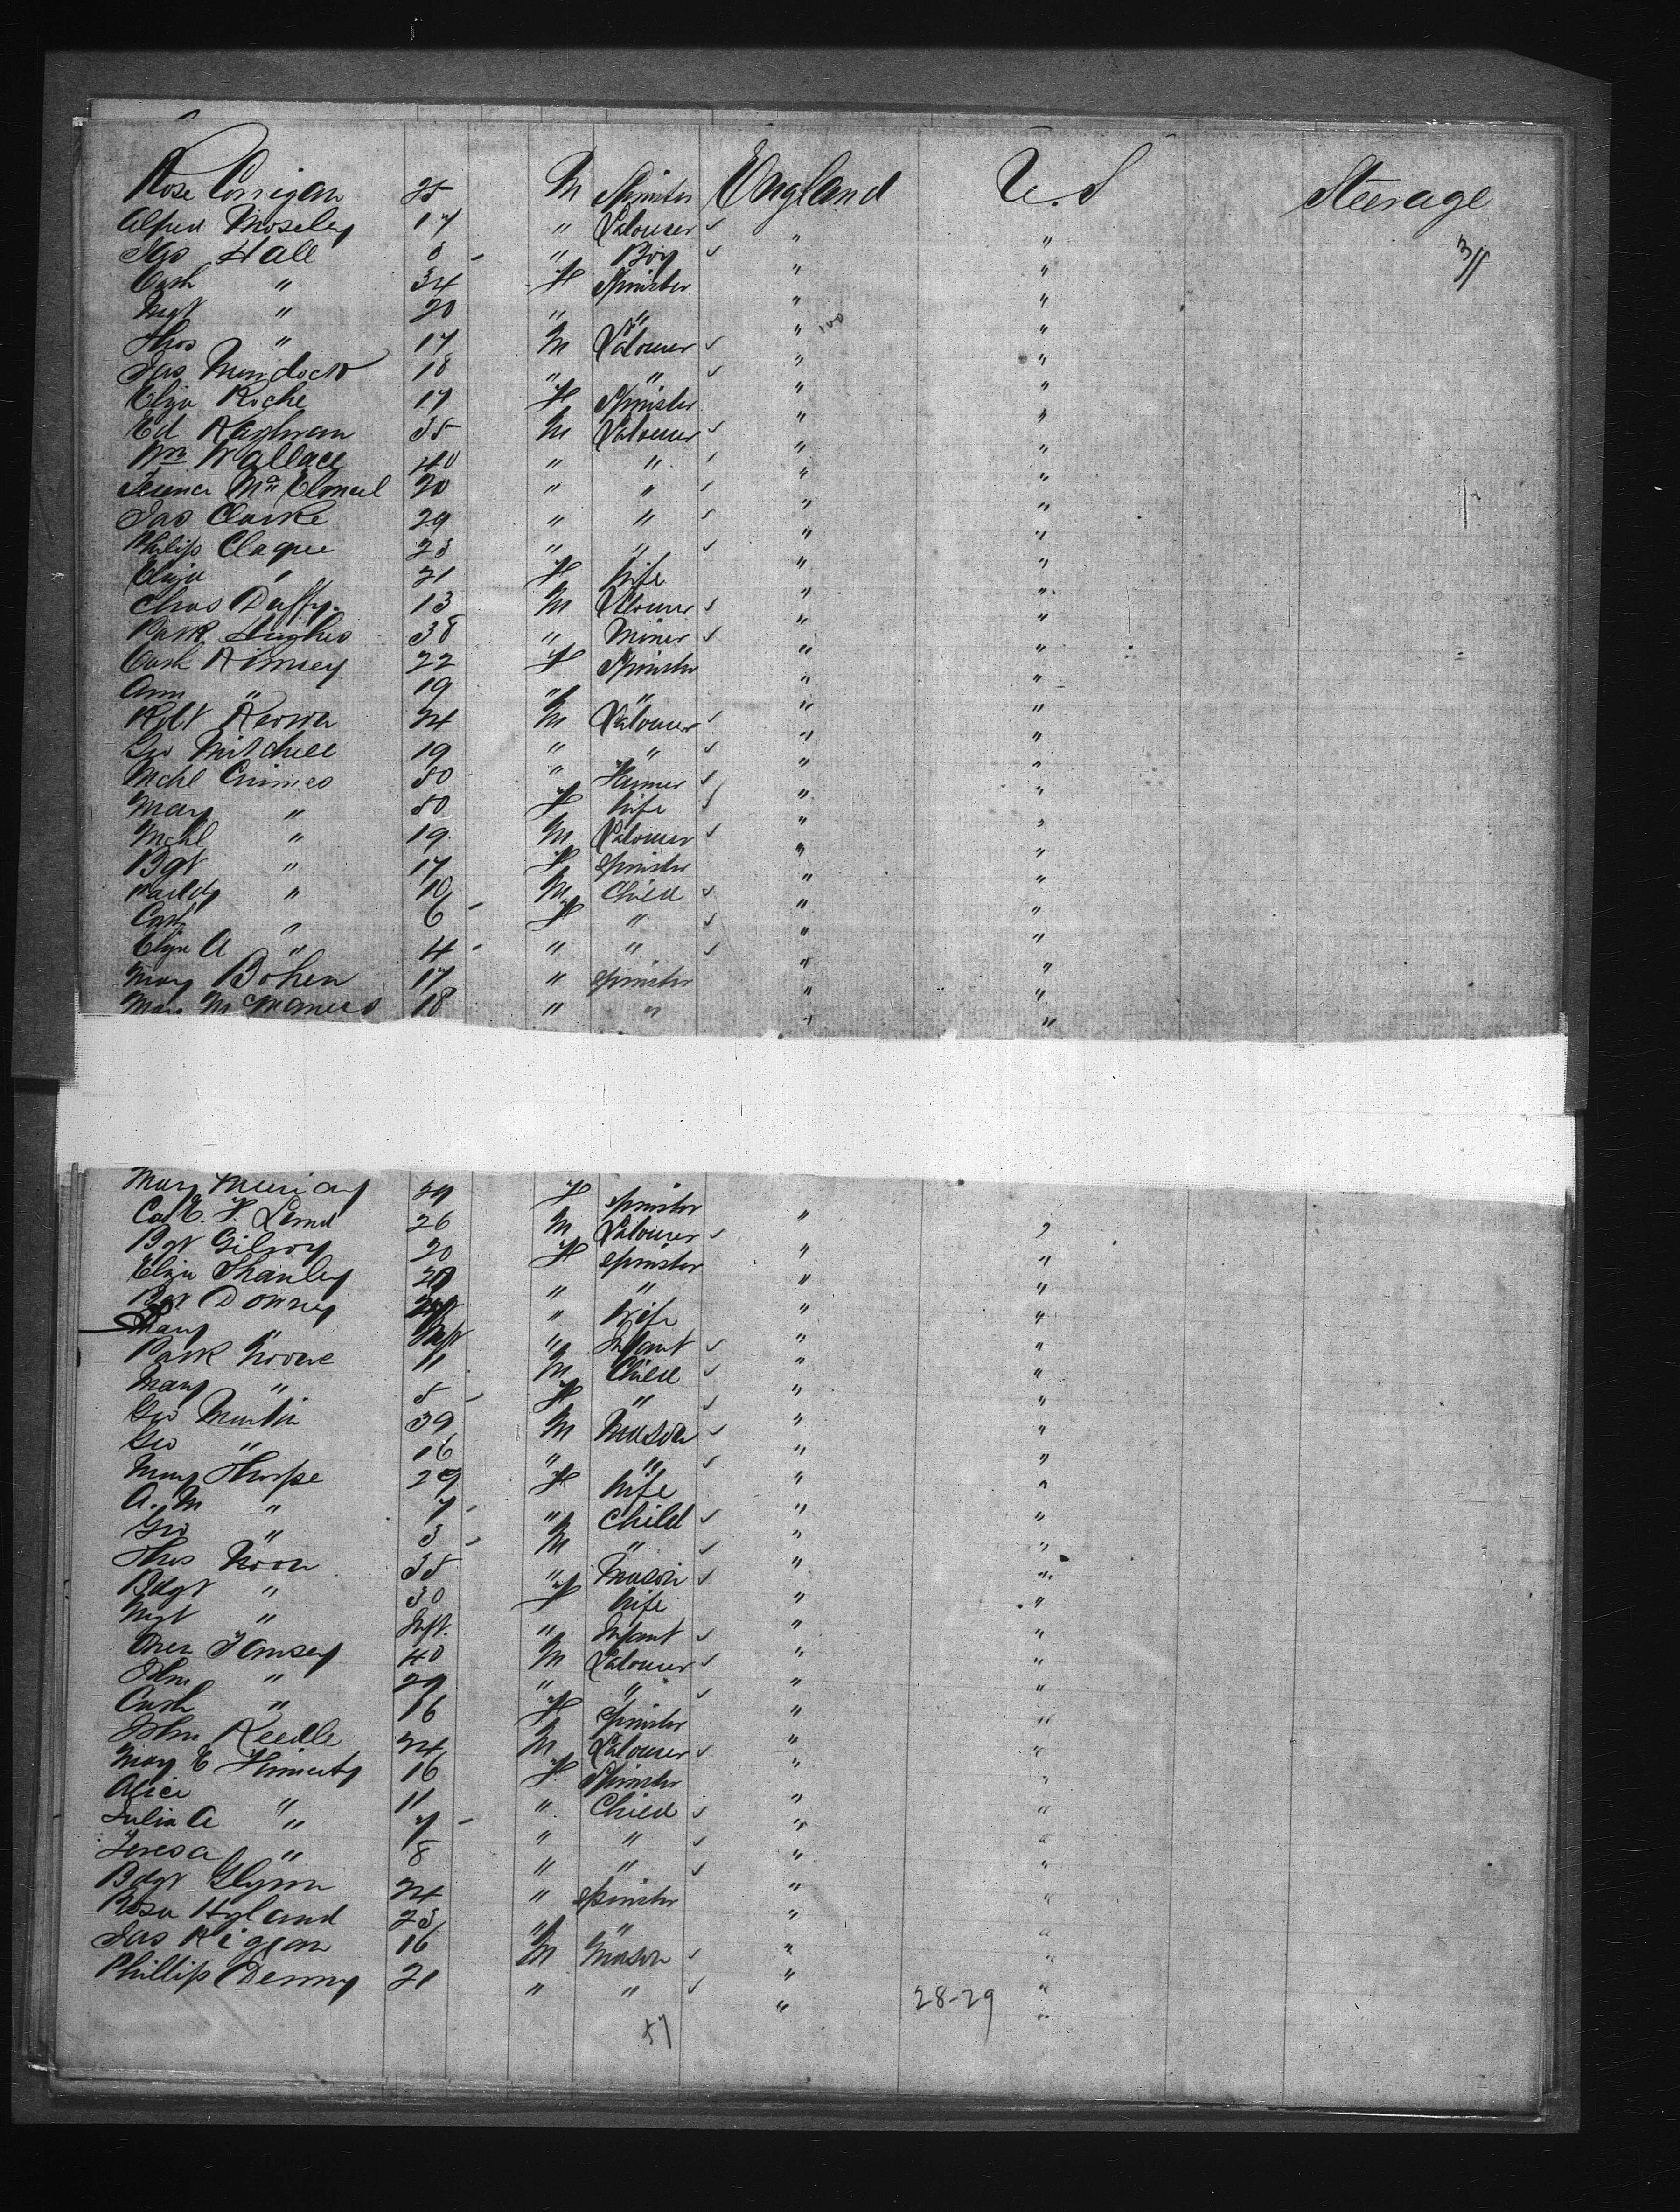 Rose Corrigan 25 M Spinster England U.S Steerage
Alfred Moseley 17 " Labourer " "
Jas Hall 8 - " Boy " " 3/1
Cath " 34 F Spinster " "
Mgt " 20 " " " "
Thos " 17 M Labourer " "
Jas Murdock 18 " " " "
Eliza Roche 17 F Spinster " "
Ed 35 M Labourer " "
Wm Wallace 40 " " " "
20 " " " "
Jas Clarke 29 " " " "
Philip Clague 23 " " " "
Eliza " 21 F Wife " "
Chas Duffy 13 M Labourer " "
Patk Hughes 38 " Miner " "
Cath 22 F Spinster " "
Ann " 19 " " " "
Robt 24 M Labourer " "
Geo Mitchell 19 " " " "
Mchl 50 " Farmer " "
Mary " 50 F Wife " "
Mchl " 19 M Labourer " "
Bgt " 17 F Spinster " "
Paddy " 10 M Child " "
Cath " 6 - F " " "
Eliza A " 4 - " " " "
Mary Bohen 17 " Spinster " "
Mary McManus 18 " " " "
Mary Murray 29 F Spinster
26 M Labourer " "
Bgt Gilroy 20 F Spinster " "
Eliza Shanley 20 " " " "
Bgt Downey " Wife " "
Mary " Inft " Infant " "
Patk Noone 11 M Child " "
Mary " 5 - F " " "
Geo Martin 39 M Mason " "
Geo " 16 " " " "
Mary Thorpe 29 F Wife " "
A. M " 7 - " Child " "
Geo " 3 - M " " "
Thos Noon 35 " Mason " "
Bdgt " 30 F Wife " "
Mgt " Inft. " Infant " "
Owen 40 M Labourer " "
John " 29 " " " "
Cath " 16 F Spinster " "
John 24 M Labourer " "
Mary E 16 F Spinster " "
Alice " 11 " Child " "
Julia A " 7 - " " " "
Teresa " 8 " " " "
Bdgt Glynn 24 " Spinster " "
Rosa Hyland 23 " " " "
Jas 16 M Mason " "
Phillip Denny 21 " " " "
57 28-29